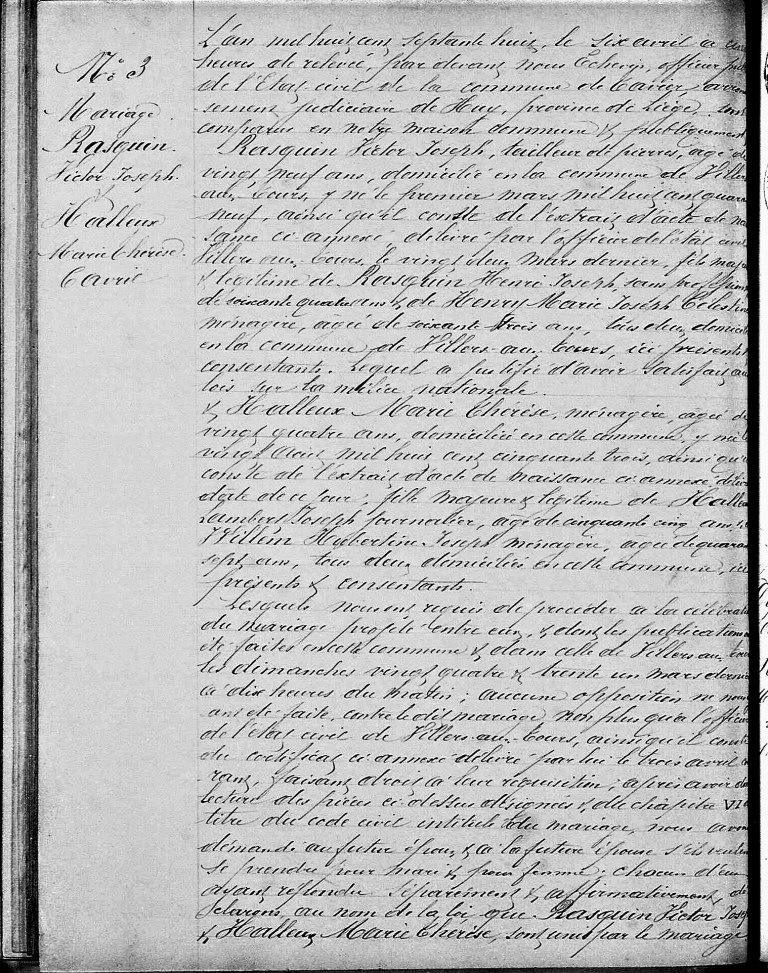 N° 3
Mariage
Rasquin
Victor Joseph
&
Halleux
Marie Thérèse
6 avril
L'an mil huit cent septante huit, le six avril a
heures de relevée, par devant nous Echevin, officier
de l'Etat civil de la commune de Tavier, arron
sement judiciaire de Huy, province de Liège, sont
comparus en notre maison commune & publiquement,
Rasquin Victor Joseph, tailleur de pierres, agé de
vingt neuf ans, domicilié en la commune de Villers
aux Tours, y né le premier mars mil huit cent quara
neuf, ainsi qu'il conste de l'extrait d'acte de nais
sance ci annexé, délivré par l'officier de l'état civil
Villers aux Tours, le vingt deux mars dernier, fils maj
& légitime de Rasquin Henri Joseph, sans profession
de soixante quatre ans &, de Henry Marie Joseph Célestine
ménagère, agée de soixante trois ans, tous deux domici
en la commune de Villers aux Tours, ici présents
consentants. Lequel a justifié d'avoir satisfait aux
lois sur la milice nationale.
& Halleux Marie Thérèse, ménagère, agée de
vingt quatre ans, domiciliée en cette commune, y née
vingt mil huit cent cinquante trois, ainsi qu'il
conste de l'extrait d'acte de naissance ci annexé, délivré
date de ce jour, fille majeure & légitime de Halleux
Lambert Joseph journalier, agé de cinquante cinq ans, &
Willem Hubertine Joseph ménagère, agée de quaran
sept ans, tous deux domiciliés en cette commune, ici
présents & consentants.
Lesquels nous ont requis de procéder a la célébrati
du mariage projeté entre eux, & dont les publications
été faites en cette commune & dans celle de Villers aux Tours
les dimanches vingt quatre & trente un mars dernier
a dix heures du matin; aucune opposition ne nous
ant été faite contre le dit mariage, non plus qu'a l'officier
de l'Etat civil de Villers aux Tours, ainsi qu'il conste
du certificat ci annexé délivré par lui le trois avril
rant, faisant droit a leur réquisition, après avoir
lecture des pièces ci dessus désignées & du chapitre VI
titre du code civil intitulé du mariage, nous avons
demandé au futur époux & a la future épouse s'ils veulent
se prendre pour mari & pour femme; chacun d'eux
ayant répondu séparément & affirmativement, dé
clarons, au nom de la loi, que Rasquin Victor Joseph
& Halleux Marie Thérèse, sont unis par le mariage